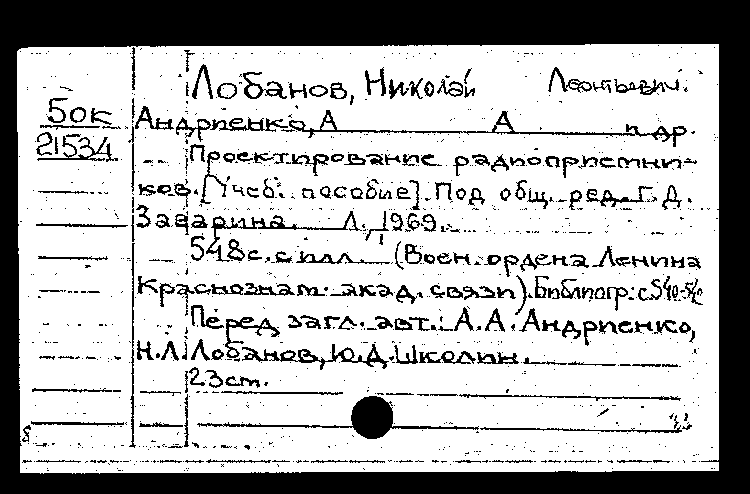 Лобанов, Николай Леонтьевич.
50к
Андриенко, А А и др.
21534
Проектирование радиоприемни-
ков. [Учеб. пособие]. Под общ. ред. Г.Д.
Заварина. Л., 1969.
548с. с илл. (Воен. ордена Ленина
Краснознам. акад. связи). Библиогр: с540-542
Перед загл. авт.: А.А. Андриенко,
Н.Л. Лобанов, Ю.Д. Школин.
23см.